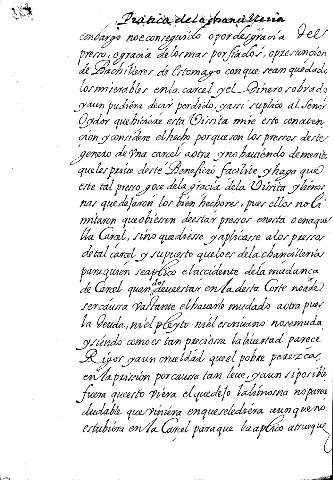 Practica de la chancilleria
embargo no e conseguido o por desgracia del
preso, o gracia de los mas porfiados, o presuncion
de Bachilleres de estomago con que se an quedado
los miserables en la carcel y el Dinero sobrado
y aun pudiera decir perdido, y assi suplico al Señor
Oydor que hiciere esta Visita mire esto con aten
cion y considere el hecho porque son los pressos deste
genero de Vna carcel a otra y no haviendo demerito
que les prive deste Beneficio facilite y haga que
este tal preso goce de la gracia de la Visita y lismos
nas que dejaron los bien hechores, pues ellos no li
mitaron que obieren de estar presos en esta o en aque
lla Carcel, sino que diesse y aplicasse a los pressos
de tal carcel y supuesto que lo es de la chancilleria
para quien se aplico el accidente de la mudança
de Carcel quando está en la desta Corte no ha de
ser causa vastante el haverlo mudado a otra pues
la deuda, ni el pleyto ni el escrivano no se muda
y siendo como es tan preciossa la livertad parece
Rigor y aun crueldad que el pobre perezca
en la prission por caussa tan leve, y aun si posible
fuera que esto viera el que dejo la limosna no parece
dudable que viniera en que se le diera aunque no
estubiera en la Carcel para que la aplico